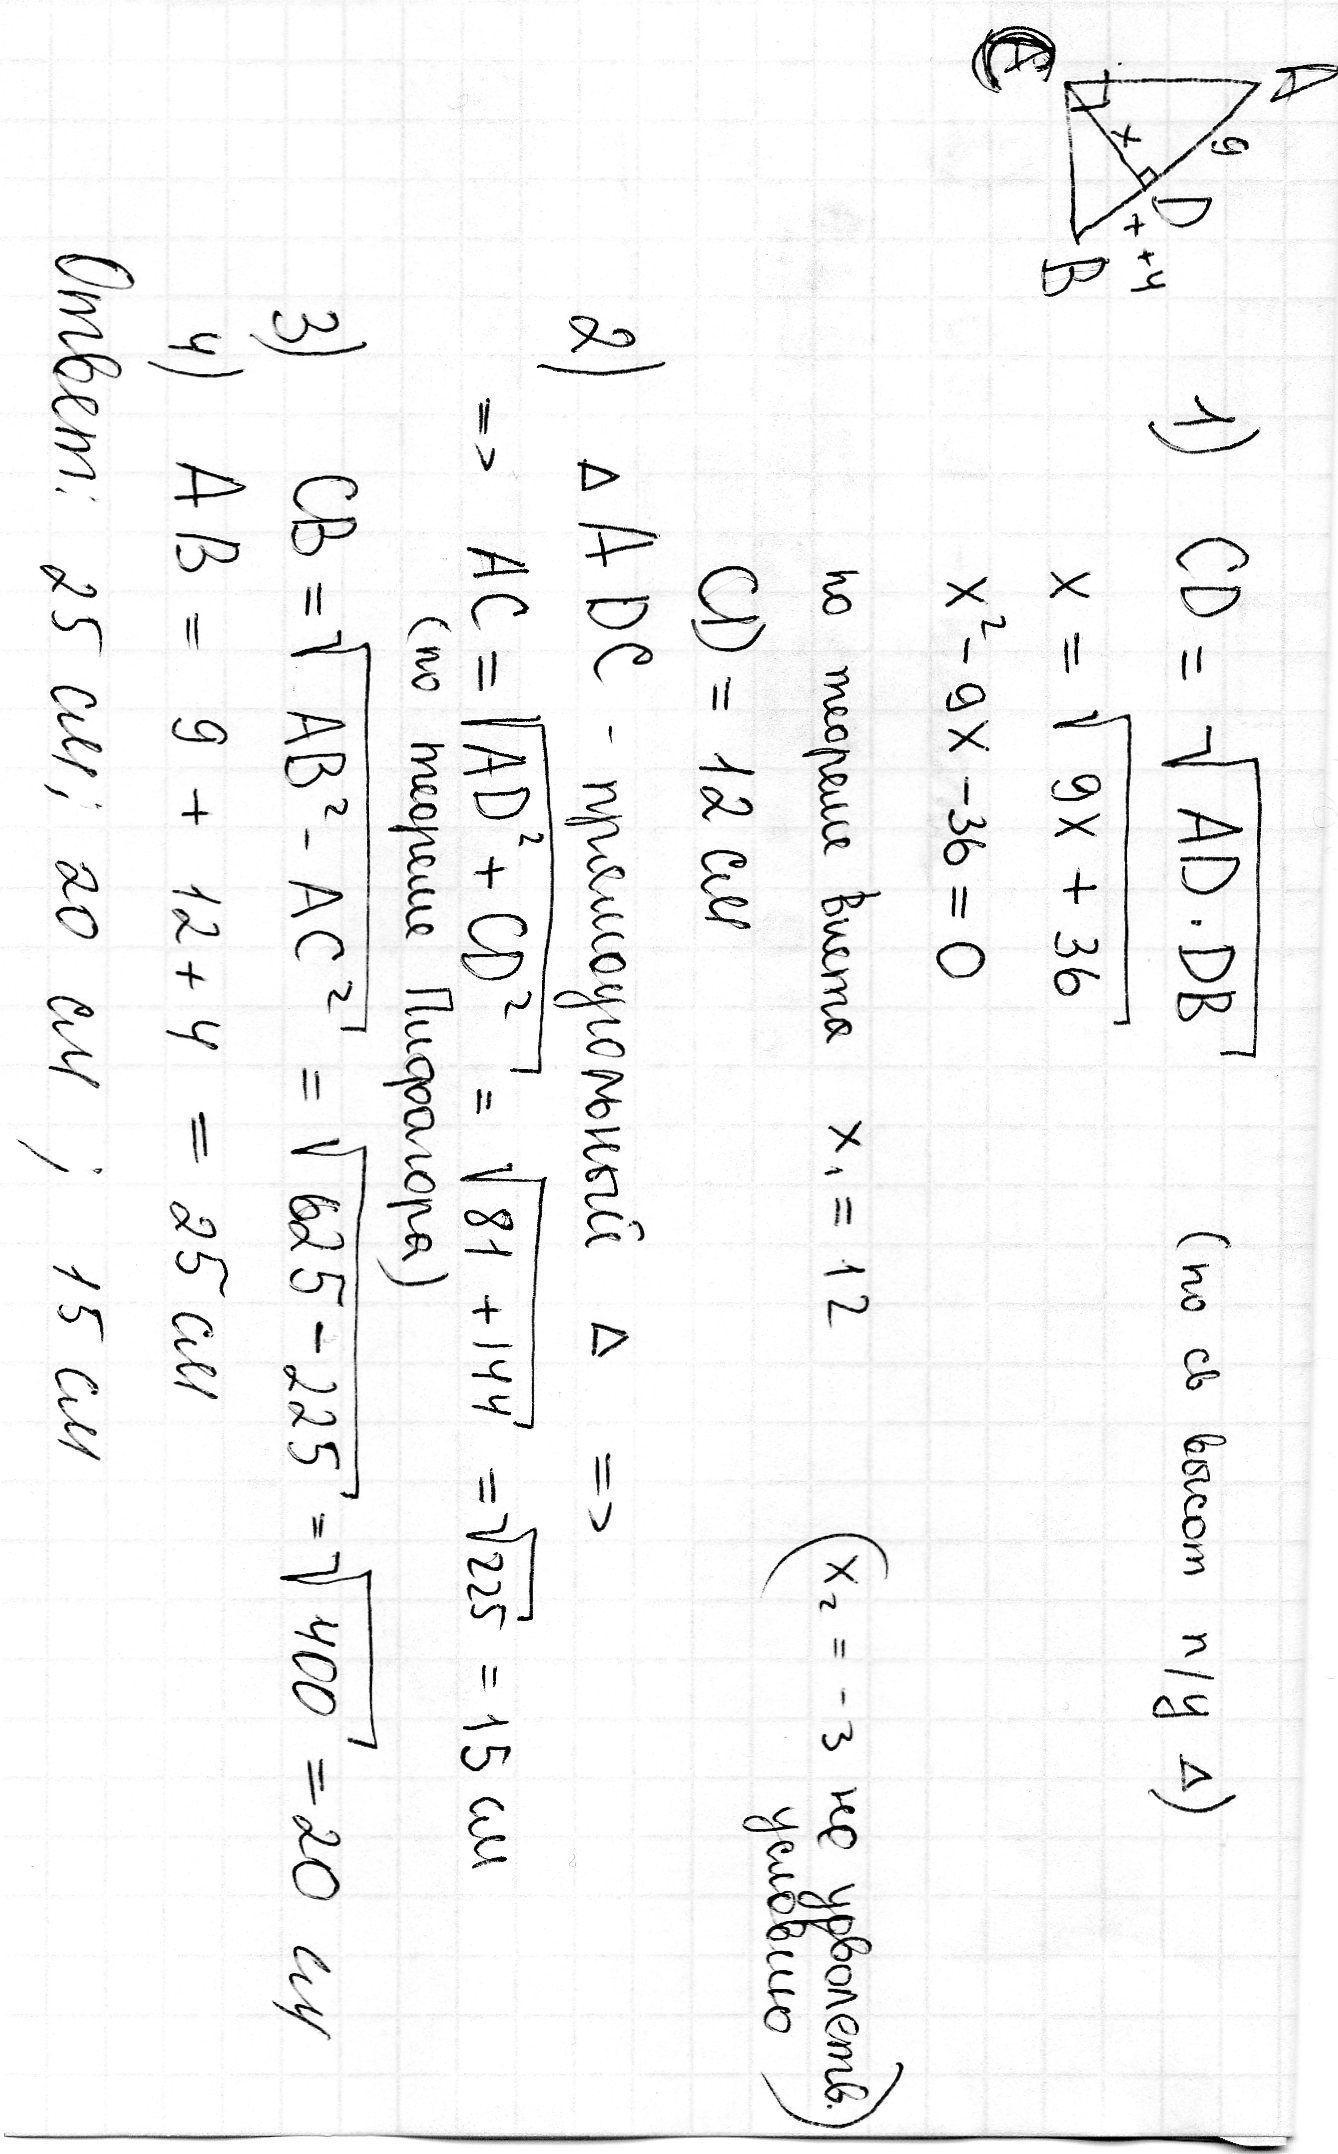 A
9
D
x
x+4
C
B
1) CD = √AD·DB (по св высот п/у Δ)
x = √9x+36
x² - 9x - 36 = 0
по теореме Виета x₁ = 12 (x₂ = -3 не удовлетв.
условию)
CD = 12 см
2) Δ ADC - прямоугольный Δ =>
=> AC = √AD²+CD² = √81+144 = √225 = 15 см
(по теореме Пифагора)
3) CB = √AB²-AC² = √625-225 = √400 = 20 см
4) AB = 9 + 12+4 = 25 см
Ответ: 25 см; 20 см; 15 см